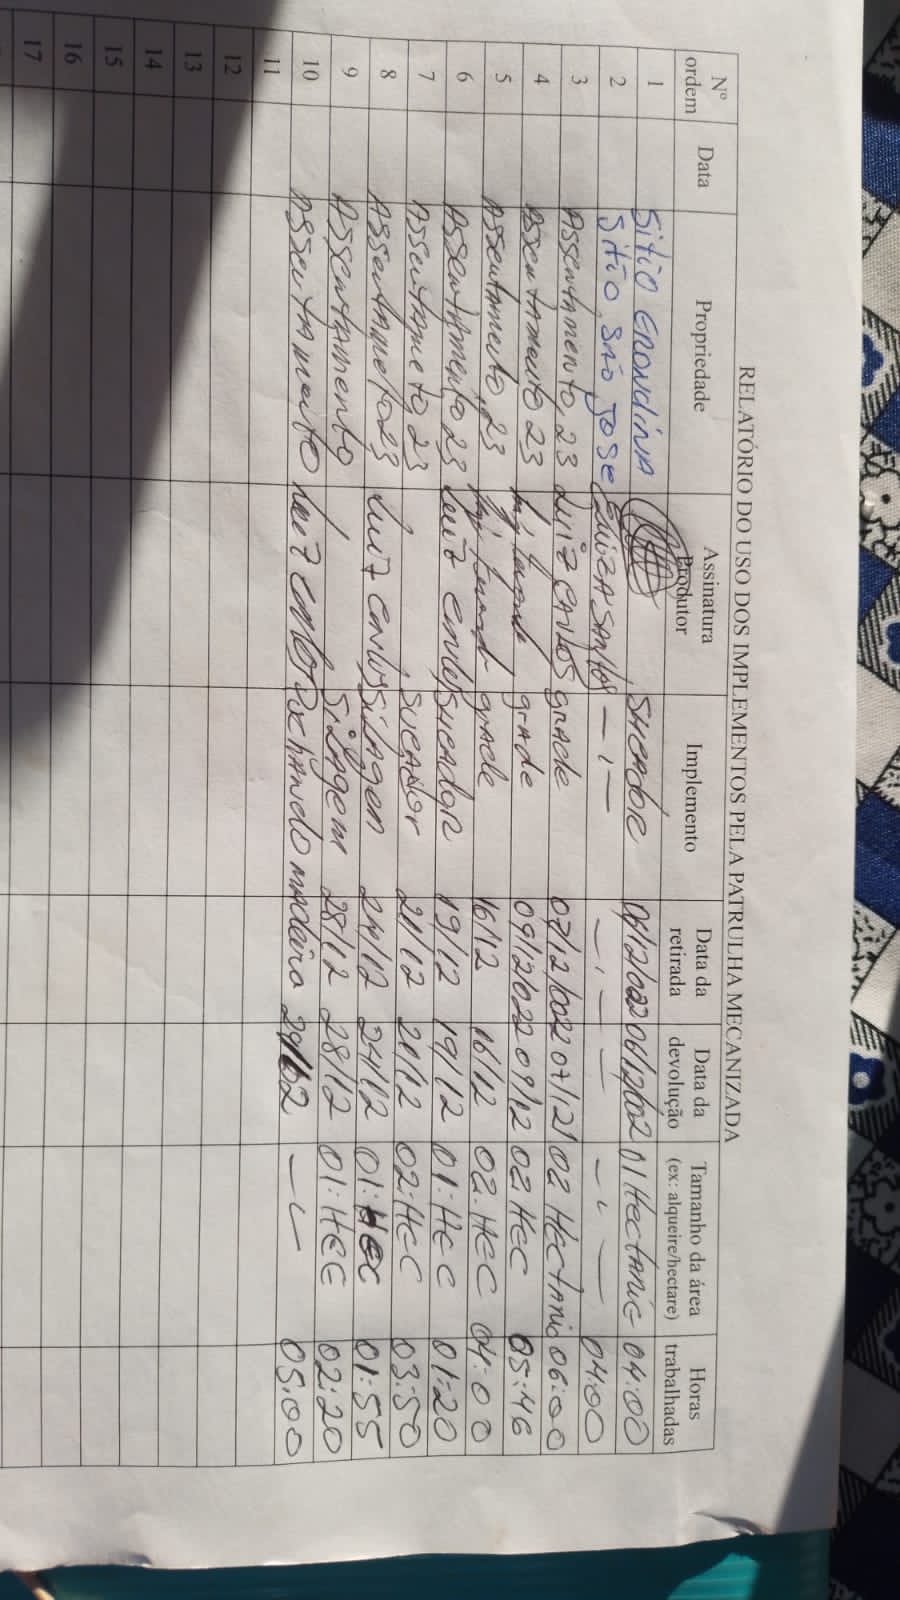 RELATÓRIO DO USO DOS IMPLEMENTOS PELA PATRULHA MECANIZADA
Nº ordem Data Propriedade Assinatura Produtor Implemento Data da retirada Data da devolução Tamanho da área (ex: alqueire/hectare) Horas trabalhadas
1 Sitio 06/12/2022 06/12/2022 01 Hectarie 04:00
2 Sitio São Jose Santos — ı — — ı — — ı — 04:00
3 Assentamento 23 Luiz Carlos grade 07/12/2022 07/12/ 02 Hectario 06:00
4 Assentamento 23 grade 09/12/2022 09/12 02 HEC 05:46
5 Assentamento, 23 grade 16/12 16/12 02. HEC 04:00
6 Assentamento 23 Luiz Sucador 19/12 19/12 01: HEC 01:20
7 Assentameto 23 Sucador 21/12 21/12 02: HEC 03:50
8 Assentameto 23 Luiz Carlos Silagen 24/12 24/12 01: HEC 01:55
9 Assentamento Silagem 28/12 28/12 01: HEC 02:20
10 Assentamento Luiz Carlos Puchando madeira 29/12 — ı — 05:00
11
12
13
14
15
16
17